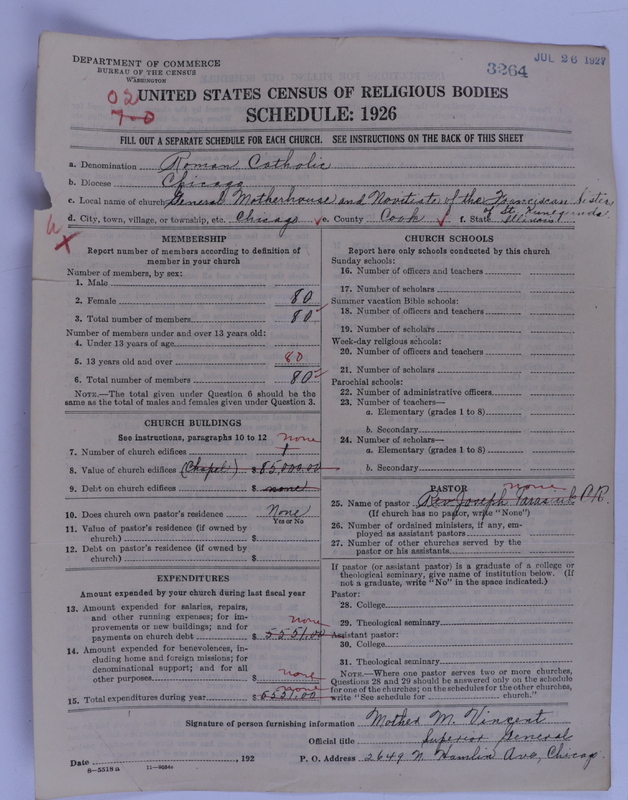 DEPARTMENT OF COMMERCE
BUREAU OF THE CENSUS
WASHINGTON
3264
JUL 26 1927
02
7-0
UNITED STATES CENSUS OF RELIGIOUS BODIES
SCHEDULE: 1926
FILL OUT A SEPARATE SCHEDULE FOR EACH CHURCH. SEE INSTRUCTIONS ON THE BACK OF THIS SHEET
a. Denomination Roman Catholic
b. Diocese Chicago
c. Local name of church General Motherhouse and Novitiate of the Franciscan Sisters
of St. Kunegunda
d. City, town, village, or township, etc. Chicago e. County Cook f. State Illinois
MEMBERSHIP
Report number of members according to definition of
member in your church
Number of members, by sex:
1. Male
2. Female 80
3. Total number of members 80
Number of members under and over 13 years old:
4. Under 13 years of age
5. 13 years old and over 80
6. Total number of members 80
NOTE.—The total given under Question 6 should be the
same as the total of males and females given under Question 3.
CHURCH BUILDINGS
See instructions, paragraphs 10 to 12 none
7. Number of church edifices 1
8. Value of church edifices (Chapel) $ 85,000.00
9. Debt on church edifices $ none
10. Does church own pastor's residence None
Yes or No
11. Value of pastor's residence (if owned by
church) $
12. Debt on pastor's residence (if owned by
church) $
EXPENDITURES
Amount expended by your church during last fiscal year
13. Amount expended for salaries, repairs,
and other running expenses; for im-
provements or new buildings; and for none
payments on church debt $ 5551.00
14. Amount expended for benevolences, in-
cluding home and foreign missions; for
denominational support; and for all none
other purposes $
none
15. Total expenditures during year $ 5551.00
CHURCH SCHOOLS
Report here only schools conducted by this church
Sunday schools:
16. Number of officers and teachers
17. Number of scholars
Summer vacation Bible schools:
18. Number of officers and teachers
19. Number of scholars
Week-day religious schools:
20. Number of officers and teachers
21. Number of scholars
Parochial schools:
22. Number of administrative officers
23. Number of teachers—
a. Elementary (grades 1 to 8)
b. Secondary
24. Number of scholars—
a. Elementary (grades 1 to 8)
b. Secondary
PASTOR none
25. Name of pastor Rev. Joseph
(If church has no pastor, write "None")
26. Number of ordained ministers, if any, em-
ployed as assistant pastors
27. Number of other churches served by the
pastor or his assistants
If pastor (or assistant pastor) is a graduate of a college or
theological seminary, give name of institution below. (If
not a graduate, write "No" in the space indicated.)
Pastor:
28. College
29. Theological seminary
Assistant pastor:
30. College
31. Theological seminary
NOTE.—Where one pastor serves two or more churches,
Questions 28 and 29 should be answered only on the schedule
for one of the churches; on the schedules for the other churches,
write "See schedule for church."
Signature of person furnishing information Mother M. Vincent
Official title Superior General
Date , 192 P. O. Address 2649 N. Hamlin Ave, Chicago
8—5518a